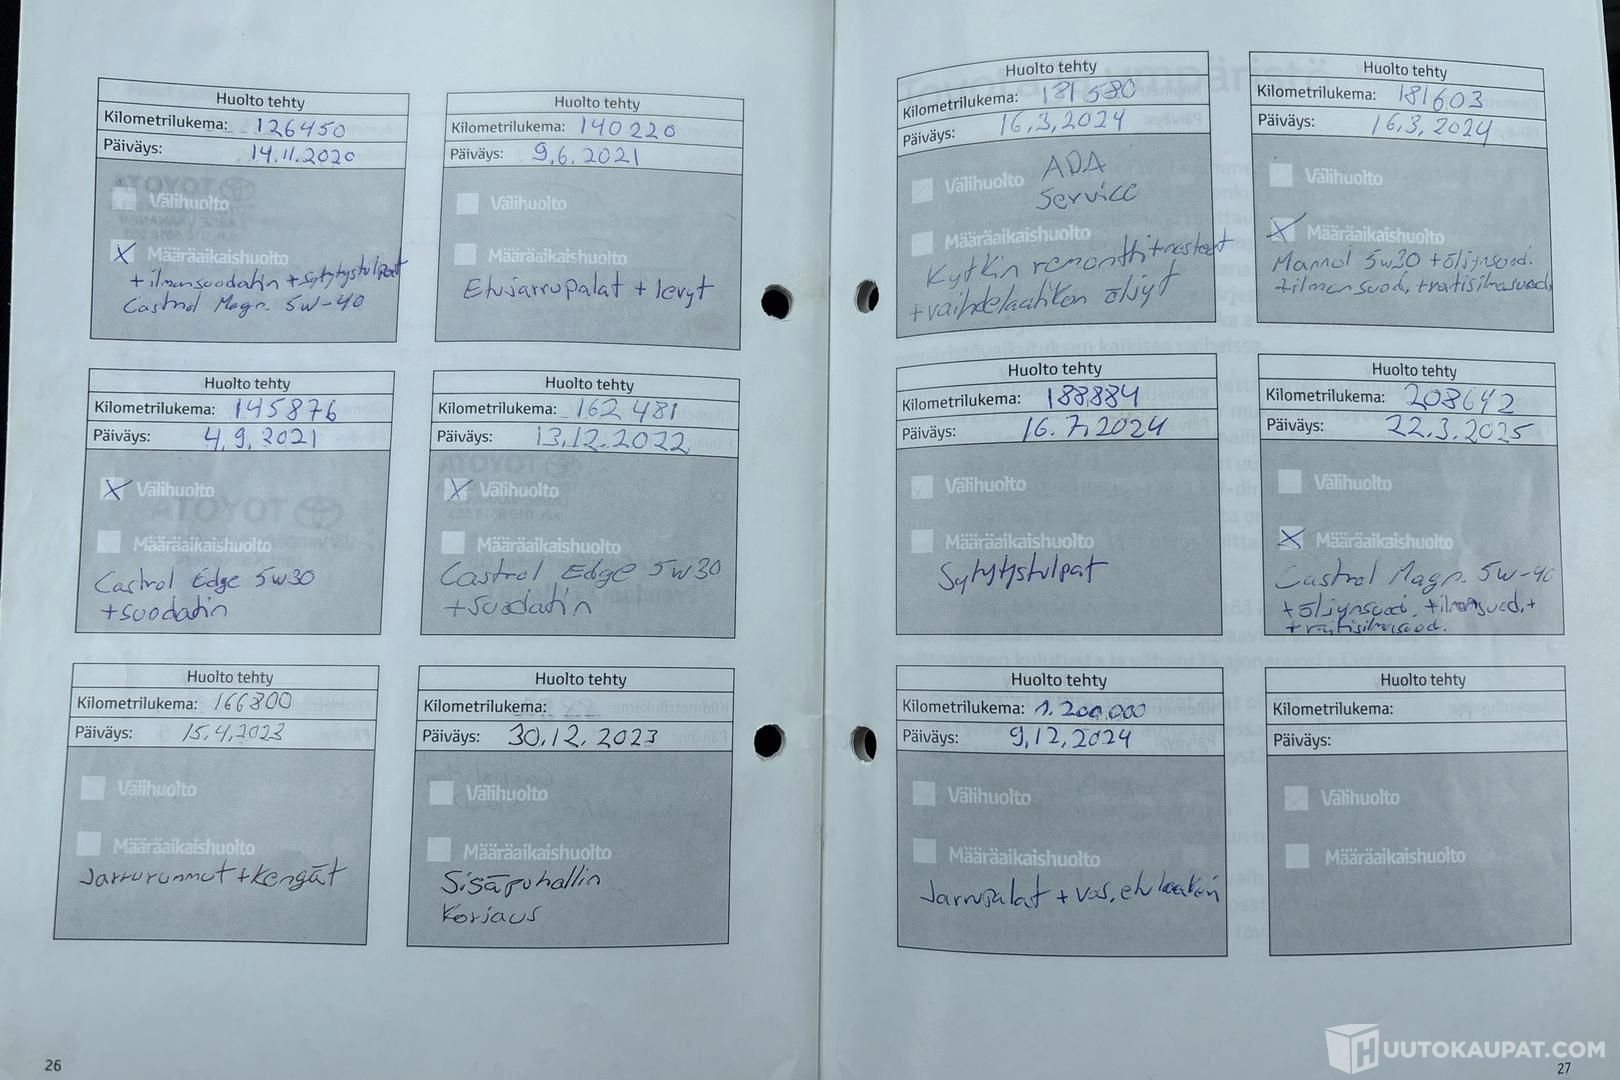 Huolto tehty
Kilometrilukema: 126450
Päiväys: 14.11.2020
TOYOTA
Välihuolto
X Määräaikaishuolto
+ ilmansuodatin + sytytystulpat
Castrol Magn. 5w-40
Huolto tehty
Kilometrilukema: 140220
Päiväys: 9.6.2021
Välihuolto
Määräaikaishuolto
Etujarrupalat + levyt
Huolto tehty
Kilometrilukema: 145876
Päiväys: 4.9.2021
X Välihuolto
TOYOTA
Määräaikaishuolto
Castrol Edge 5w30
+suodatin
Huolto tehty
Kilometrilukema: 162481
Päiväys: 13.12.2022
TOYOTA
X Välihuolto
Määräaikaishuolto
Castrol Edge 5w30
+suodatin
Huolto tehty
Kilometrilukema: 166800
Päiväys: 15.4.2023
Välihuolto
Määräaikaishuolto
Jarrurummut+kengät
Huolto tehty
Kilometrilukema:
Päiväys: 30.12.2023
Välihuolto
Määräaikaishuolto
Sisäpuhallin
korjaus
26
Huolto tehty
Kilometrilukema: 181580
Päiväys: 16.3.2024
Välihuolto ADA
Service
Määräaikaishuolto
Kytkin remontti
+vaihdelaatikon öljyt
Huolto tehty
Kilometrilukema: 181603
Päiväys: 16.3.2024
Välihuolto
X Määräaikaishuolto
Mannol 5w30 +öljynsuod.
+ilmansuod. +raitisilmasuod.
Huolto tehty
Kilometrilukema: 188884
Päiväys: 16.7.2024
Välihuolto
Määräaikaishuolto
Sytytystulpat
Huolto tehty
Kilometrilukema: 208642
Päiväys: 22.3.2025
Välihuolto
X Määräaikaishuolto
Castrol Magn. 5w-40
+öljynsuod. +ilmansuod.+
+raitisilmasuod.
Huolto tehty
Kilometrilukema: 1.200.000
Päiväys: 9.12.2024
Välihuolto
Määräaikaishuolto
Jarrupalat + vas. etu
Huolto tehty
Kilometrilukema:
Päiväys:
Välihuolto
Määräaikaishuolto
27
HUUTOKAUPAT.COM